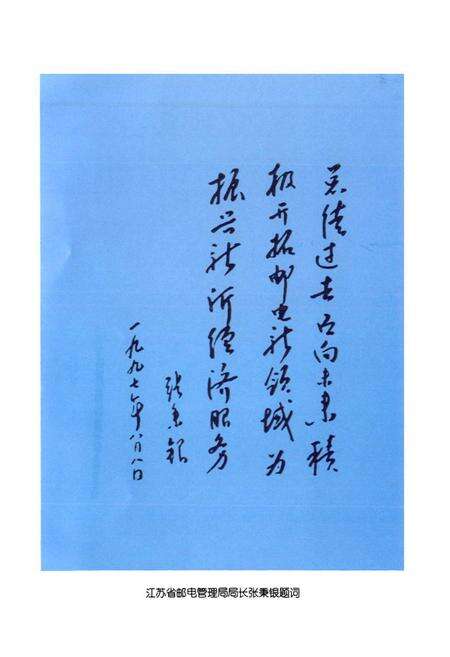 总结过去面向未来积
极开拓邮电新领域为
振兴新沂经济服务
张秉银
一九九七年八月八日
江苏省邮电管理局局长张秉银题词